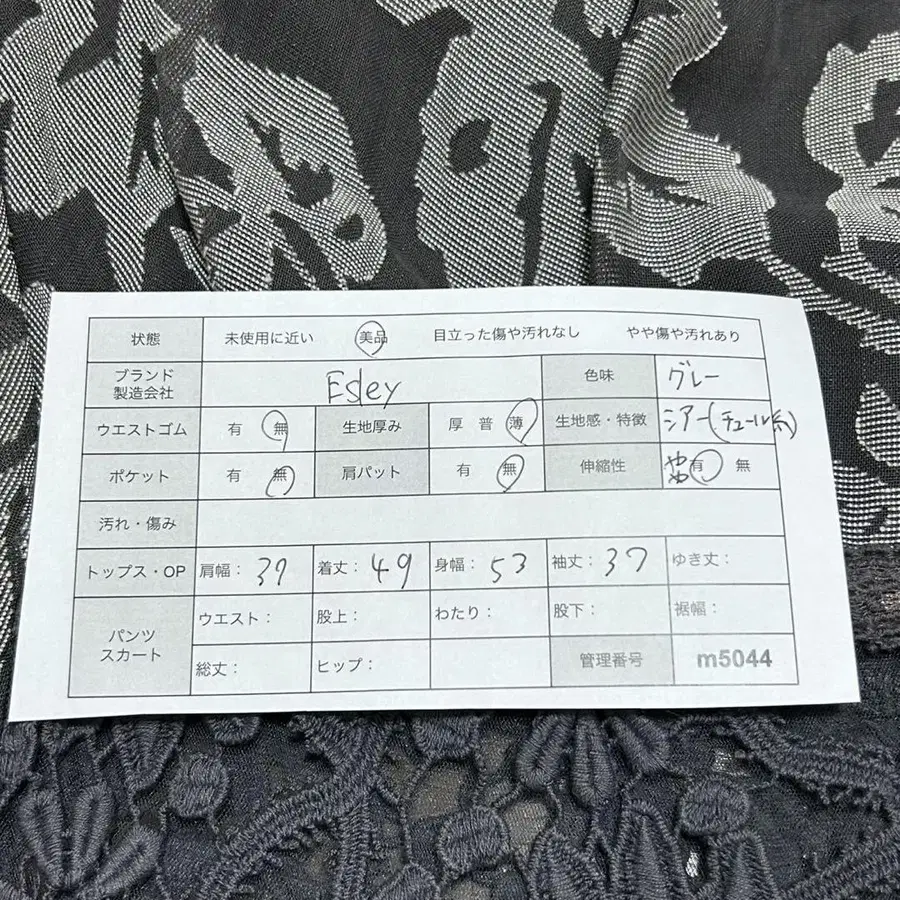 状態 未使用に近い 美品 目立った傷や汚れなし やや傷や汚れあり
ブランド
製造会社
Esley 色味 グレー
ウエストゴム 有 無 生地厚み 厚 普 薄 生地感・特徴 シアー(チュール系)
ポケット 有 無 肩パット 有 無 伸縮性 やや有 無
汚れ・傷み
トップス・OP 肩幅: 39 着丈: 49 身幅: 53 袖丈: 37 ゆき丈:
パンツ
スカート
ウエスト: 股上: わたり: 股下: 裾幅:
総丈: ヒップ: 管理番号 m5044